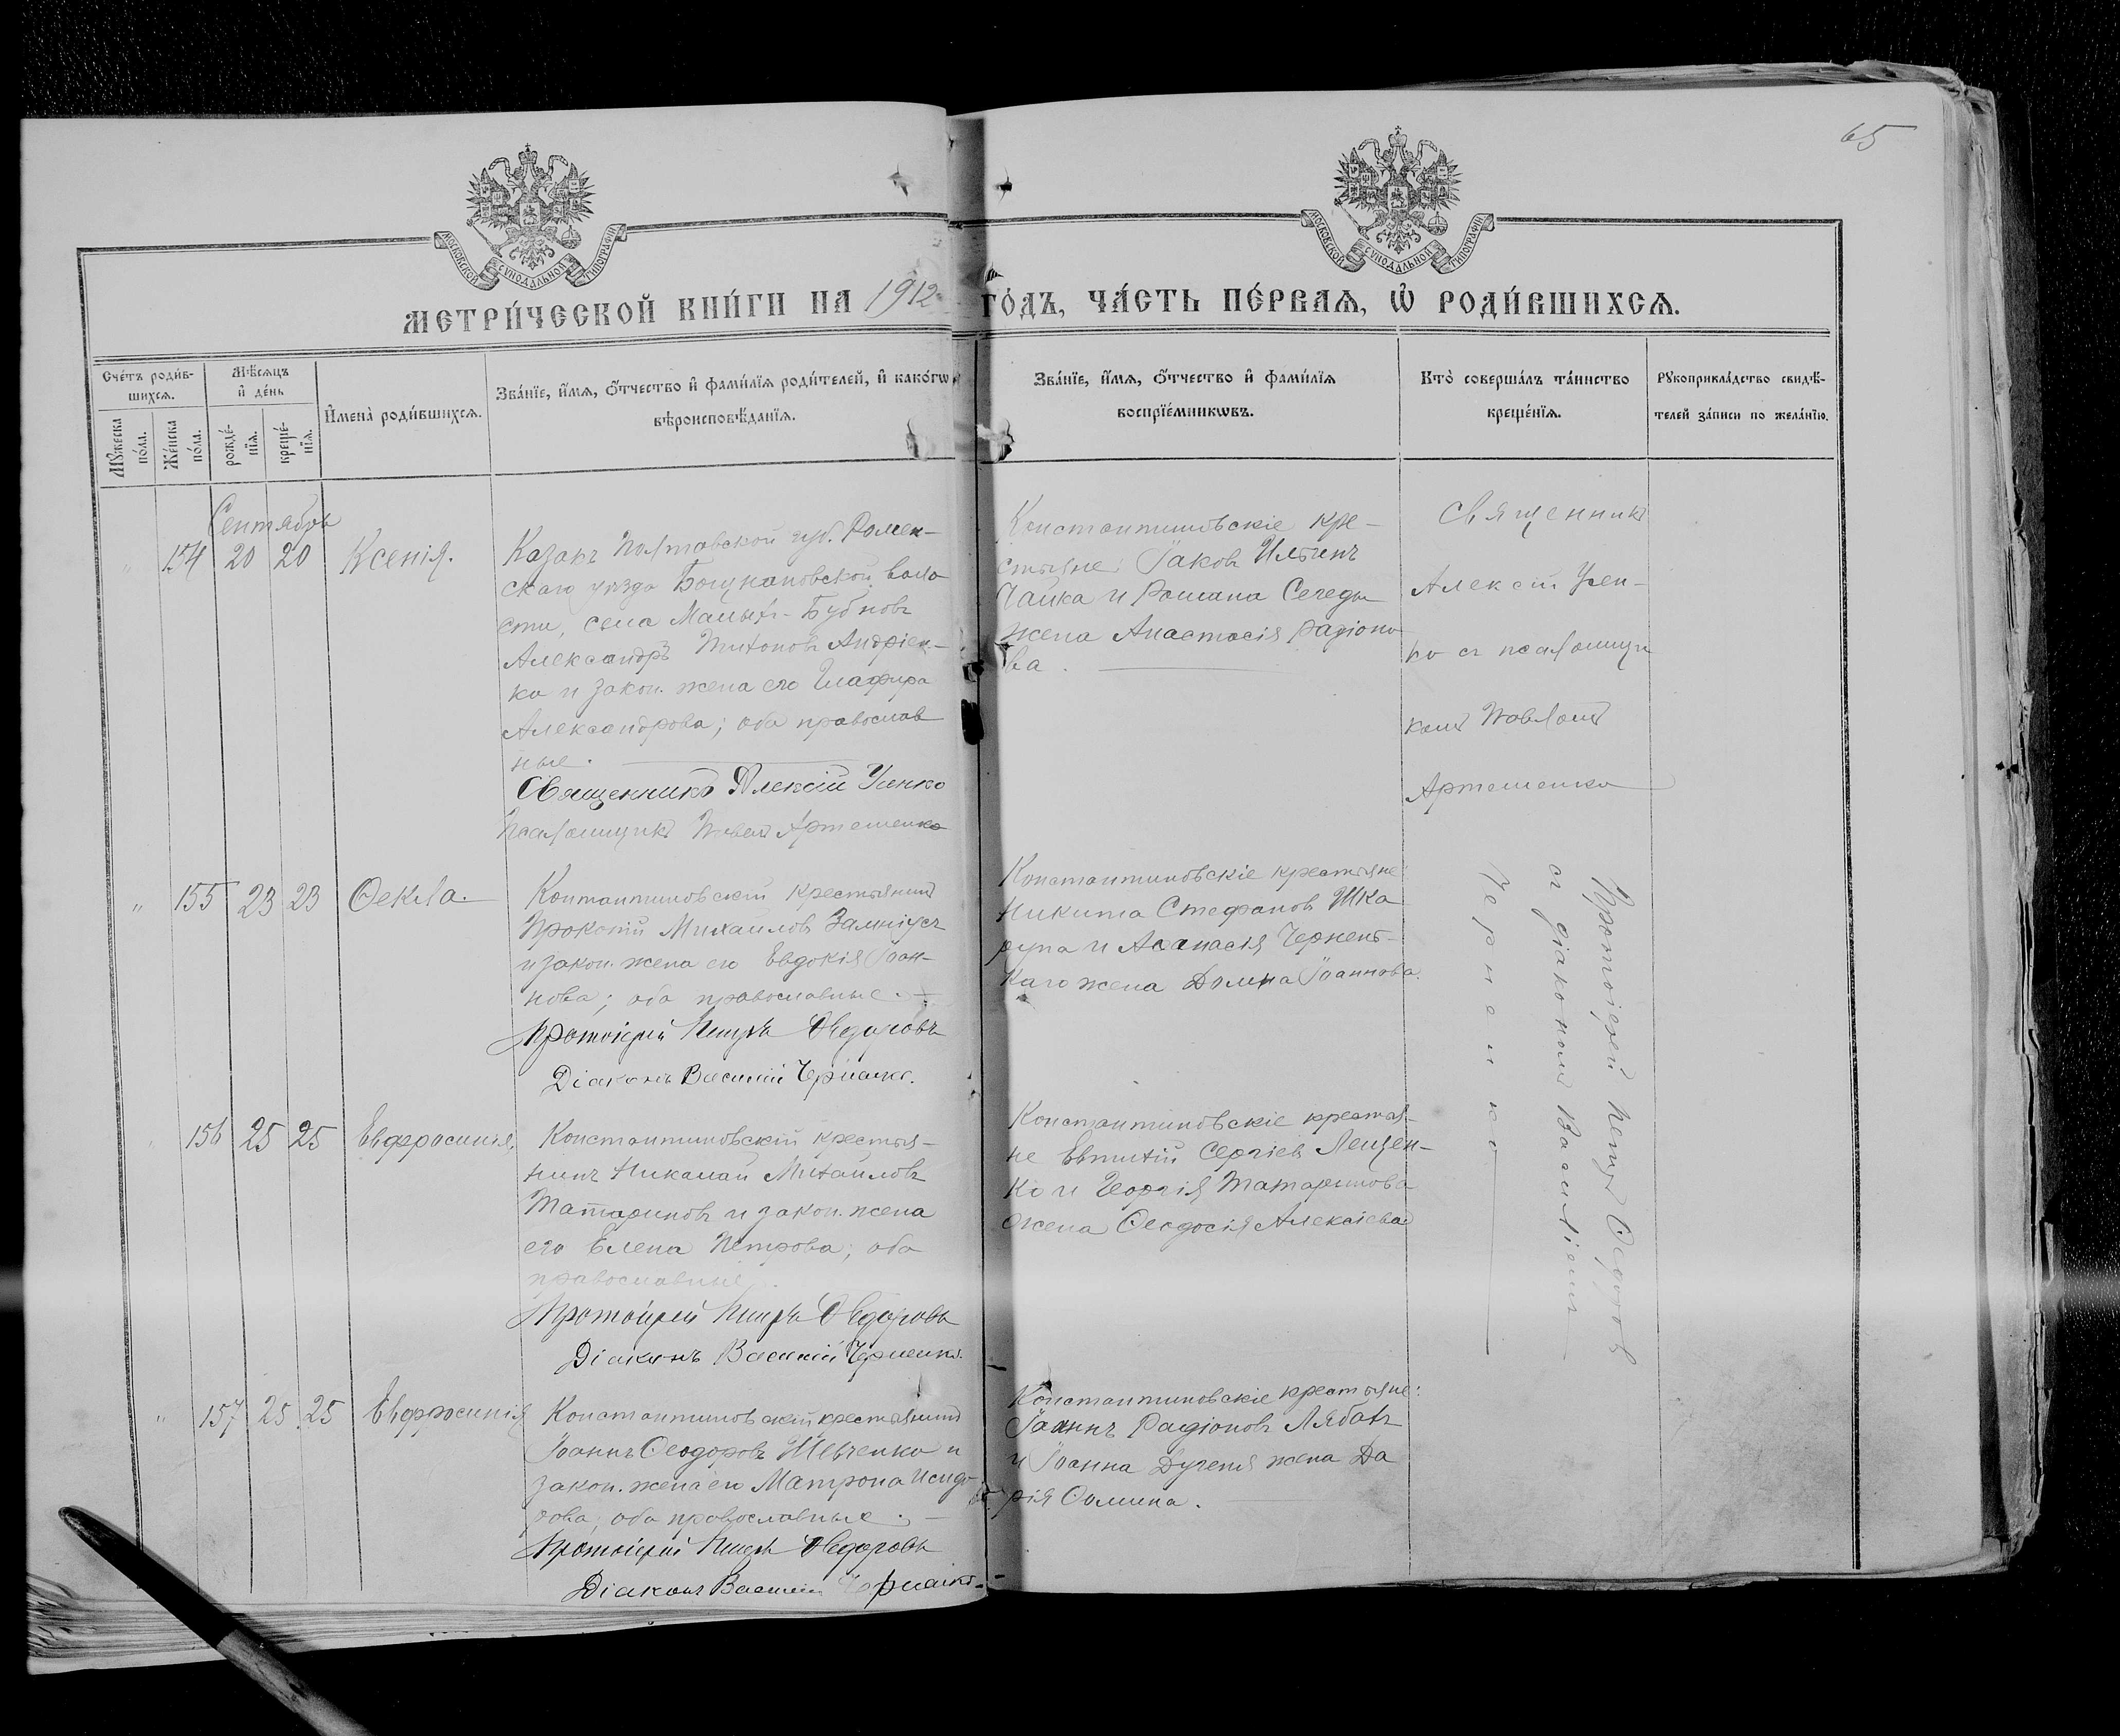 65
МОСКОВСКОЙ СУНОДАЛЬНОЙ ТИПОГРАФІИ
МОСКОВСКОЙ СУНОДАЛЬНОЙ ТИПОГРАФІИ
МЕТРИ́ЧЕСКОЙ КНИ́ГИ НА 1912 ГО́ДЪ, ЧА́СТЬ ПЕ́РВАѦ, Ѽ РОДИ́ВШИХСѦ.
Счéтъ роди́в-
шихсѧ.
Мѣ́сѧцъ
и҆ дéнь
Мꙋ́жеска
пóла.
Жéнска
пóла.
рождé-
нїѧ.
крещé-
нїѧ.
И҆менà роди́вшихсѧ.
Звáнїе, и҆́мѧ, ѻ҆́тчество и҆ фами́лїѧ роди́телей, и҆ какóгѡ
вѣроисповѣ́данїѧ.
Звáнїе, и҆́мѧ, ѻ҆́тчество и҆ фами́лїѧ
воспрїéмникѡвъ.
Ктò совершáлъ тáинство
крещéнїѧ.
Рꙋкоприклáдство свидѣ́-
телей зáписи по желáнїю.
Сентябрь
154 20 20 Ксенія.
Казакъ Полтавской губ. Ромен-
скаго уѣзда воло
сти, села Малыхъ-Бубновъ
Александръ Титовъ Андріен-
ко и закон. жена его Глафира
Александрова; оба православ
ные.
Священникъ Алексій Усенко
Псаломщикъ Павелъ Артеменко
Константиновскіе кре-
стьяне: Іаковъ Ильинъ
Чайка и Романа Середы
жена Анастасія Радіоно
ва.
Священникъ
Алексій Усен-
ко съ псаломщи
комъ Павломъ
Артеменко
" 155 23 23 Ѳекла.
Контантиновскій крестьянинъ
Прокопій Михаиловъ
и закон. жена его Евдокія Іоан-
нова; оба православные.
Протоіерей Петръ Ѳедоровъ
Діаконъ Василій Черненко.
Константиновскіе крестьяне:
Никита Стефановъ Шка
рупа и Аѳанасія Чернень-
каго жена Домна Іоаннова.
Протоіерей Петръ Ѳедоровъ
съ діакономъ Василіемъ
Черненко
156 25 25 Евфросинія.
Константиновскій крестья-
нинъ Николай Михаиловъ
Татариновъ и закон. жена
его Елена Петрова; оба
православные.
Протоіерей Петръ Ѳедоровъ
Діаконъ Василій Черненко.
Константиновскіе крестья-
не Евтихій Сергіевъ Лещен-
ко и Георгія Татаринова
жена Ѳеодосія Алексіева
" 157 25 25 Евфросинія
Константиновскій крестьянинъ
Іоаннъ Ѳеодоровъ Шевченко и
закон. жена его Матрона Исидо-
рова; оба православные.
Протоіерей Петръ Ѳедоровъ
Діаконъ Василій Черненко.
Константиновскіе крестьяне:
Іоаннъ Радіоновъ Лябахъ
и Іоанна жена Да
рія Ѳомина.